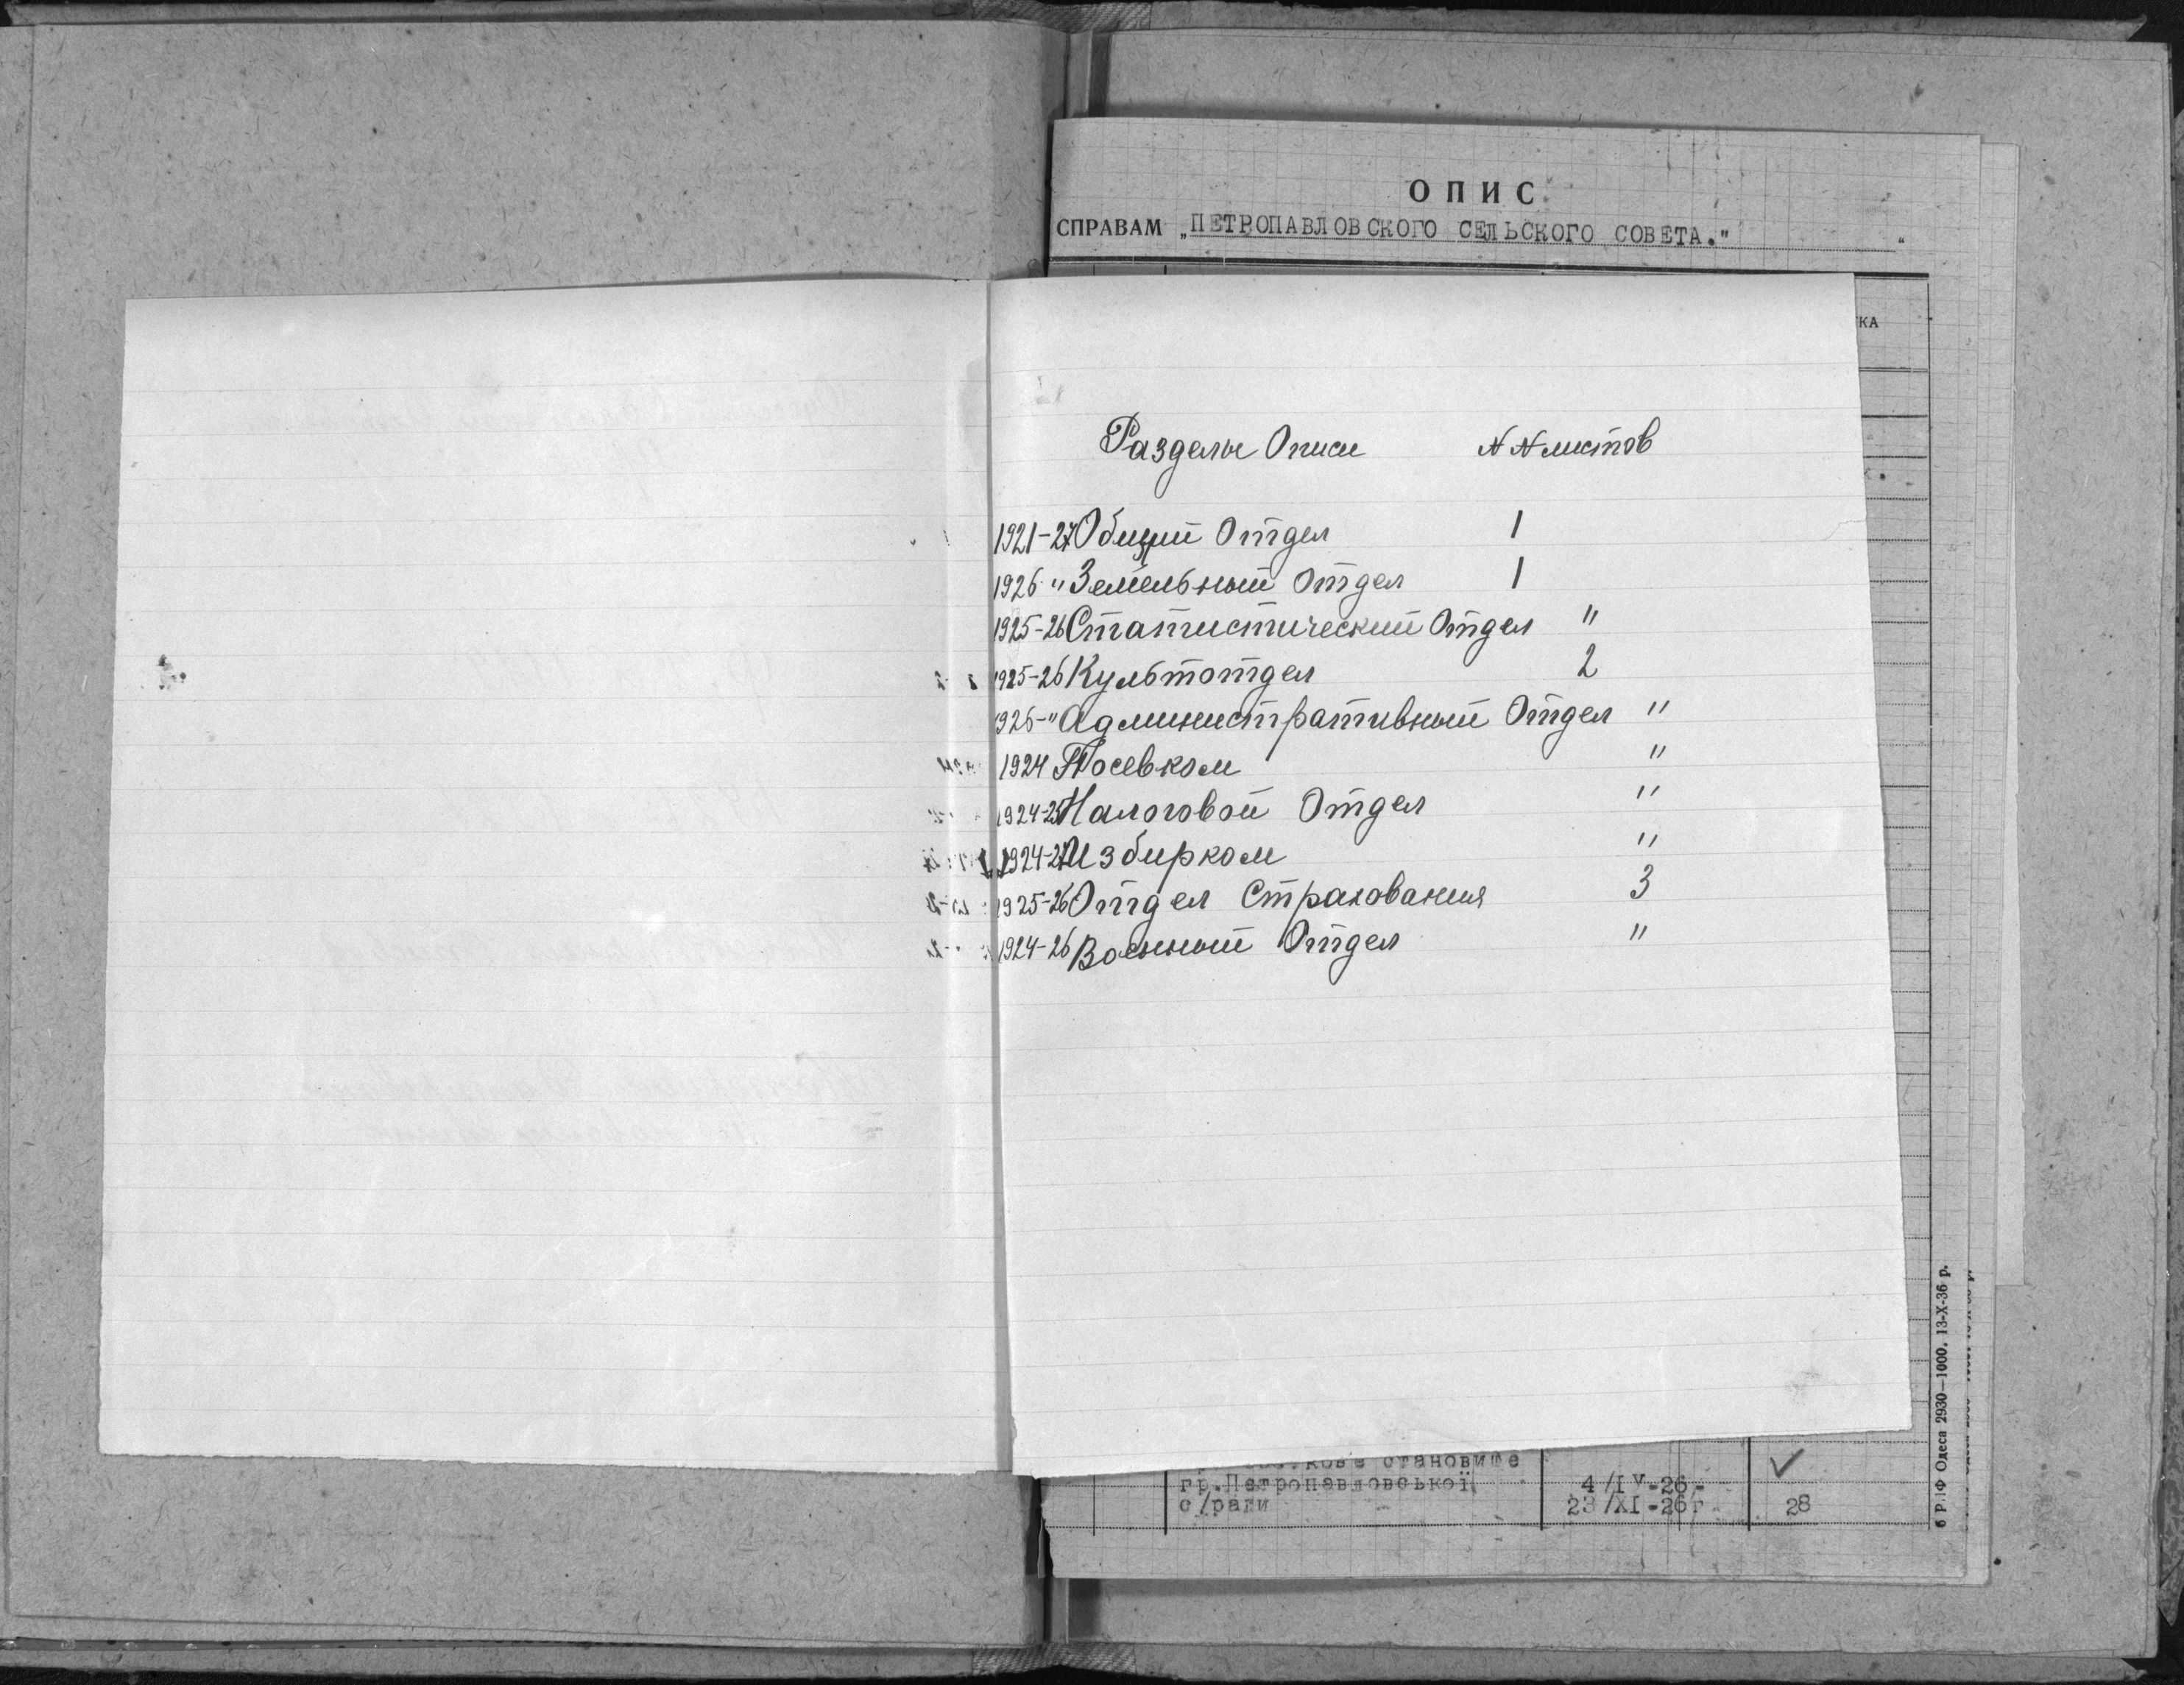 ОПИС
СПРАВАМ „ПЕТРОПАВЛОВСКОГО СЕЛЬСКОГО СОВЕТА."
КА
Разделы Описи N N листов
1921-27 Общий Отдел 1
1926 " Земельный Отдел 1
1925-26 Статистический Отдел "
1925-26 Культотдел 2
1926-" Административный Отдел "
1924 Посевком "
1924-25 Налоговой Отдел "
1924-27 Избирком "
1925-26 Отдел Страхования 3
1924-26 Военный Отдел "
становище
гр.Петропавловської 4/IV-26-
с/ради 23/XI-26г 28
6 РДФ Одеса 2930—1000. 13-X-36 р.